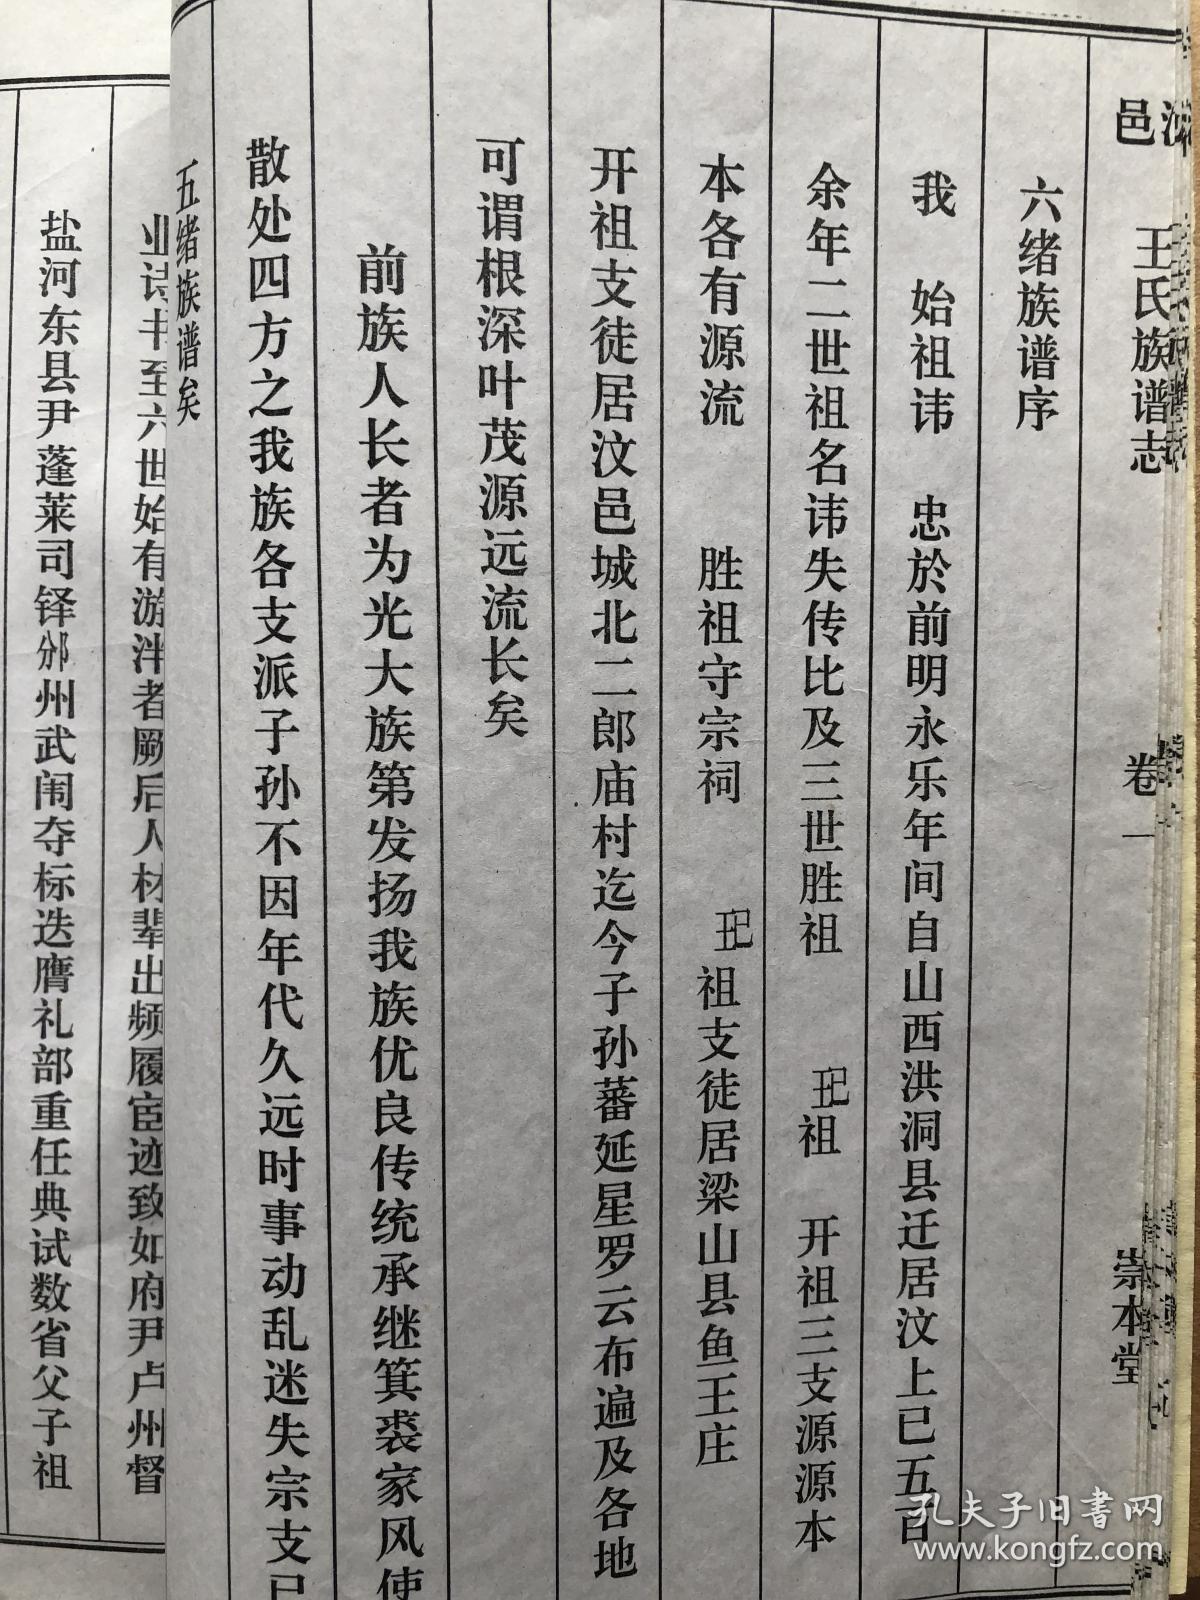 邑
王氏族谱志
卷一
崇本堂
六绪族谱序
我 始祖讳 忠於前明永乐年间自山西洪洞县迁居汶上已五百
余年二世祖名讳失传比及三世胜祖 玘祖 开祖三支源源本
本各有源流 胜祖守宗祠 玘祖支徒居梁山县鱼王庄
开祖支徒居汶邑城北二郎庙村迄今子孙蕃延星罗云布遍及各地
可谓根深叶茂源远流长矣
前族人长者为光大族第发扬我族优良传统承继箕裘家风使
散处四方之我族各支派子孙不因年代久远时事动乱迷失宗支已
五绪族谱矣
业诗书至六世始有游泮者厥后人材辈出频履宦迹致如府尹卢州督
盐河东县尹蓬莱司铎邠州武闱夺标迭膺礼部重任典试数省父子祖
孔夫子旧书网
www.kongfz.com